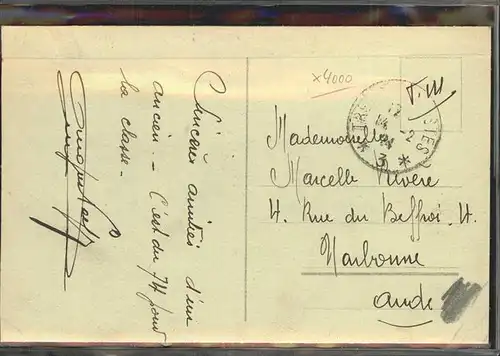 Sincères amitiés d'un
ancien - C'est du 74 pour
la classe -
x4000
F.M
* 3 *
Mademoiselle
Marcelle Rivière
4. Rue du Beffroi. 4.
Narbonne
Aude